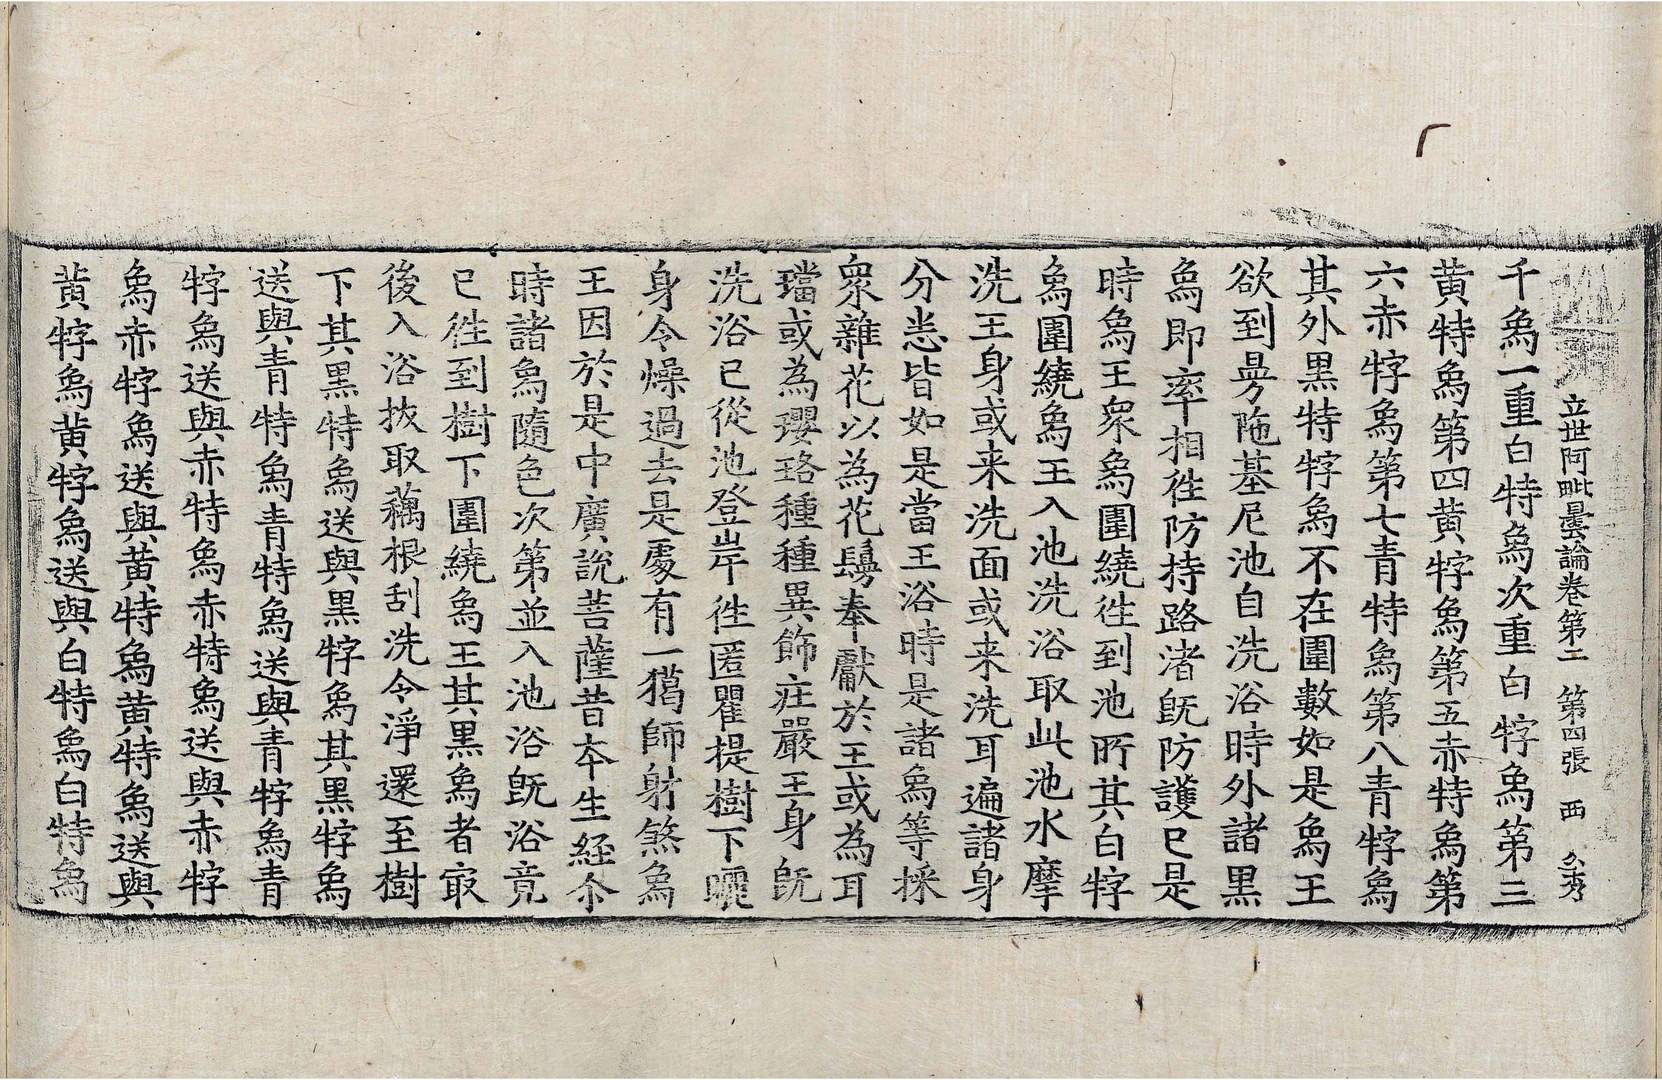 立世阿毗曇論卷第二　第四張　西　公秀
千烏一重白特烏次重白牸烏第三
黄特烏第四黄牸烏第五赤特烏第
六赤牸烏第七青特烏第八青牸烏
其外黒特牸烏不在圍數如是烏王
欲到㬅陁基尼池自洗浴時外諸黒
烏即率相徃防持路渚旣防護已是
時烏王衆烏圍繞徃到池所其白牸
烏圍繞烏王入池洗浴取此池水摩
洗王身或来洗面或来洗耳遍諸身
分悉皆如是當王浴時是諸烏等採
衆雜花以為花鬘奉獻於王或為耳
璫或為瓔珞種種異飾疘嚴王身旣
洗浴已從池登岸徃匿瞿提樹下曬
身令燥過去是處有一獦師射煞烏
王因於是中廣說菩薩昔本生經尒
時諸烏隨色次第並入池浴旣浴竟
已徃到樹下圍繞烏王其黒烏者㝡
後入浴抜取藕根刮洗令淨還至樹
下其黒特烏送與黒牸烏其黒牸烏
送與青特烏青特烏送與青牸烏青
牸烏送與赤特烏赤特烏送與赤牸
烏赤牸烏送與黄特烏黄特烏送與
黄牸烏黄牸烏送與白特烏白特烏